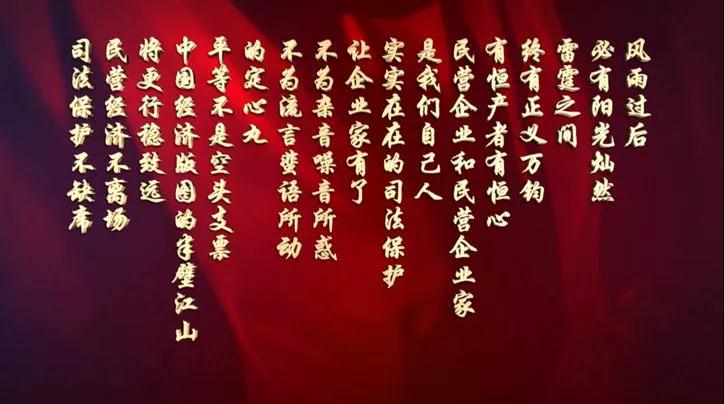 风雨过后
必有阳光灿然
雷霆之间
终有正义万钧
有恒产者有恒心
民营企业和民营企业家
是我们自己人
实实在在的司法保护
让企业家有了
不为杂音噪音所惑
不为流言蜚语所动
的定心丸
平等不是空头支票
中国经济版图的半壁江山
将更行稳致远
民营经济不离场
司法保护不缺席